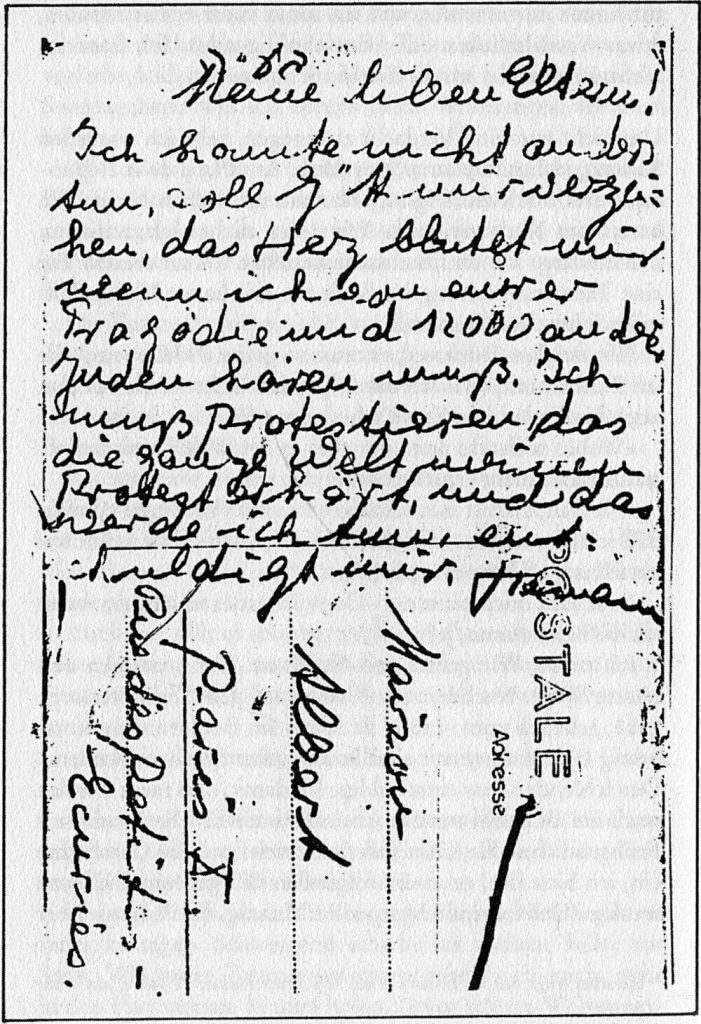 Meine lieben Eltern!
Ich konnte nicht anders
tun, soll G"tt mir verzei-
hen, das Herz blutet mir
wenn ich von eurer
Tragödie und 12000 ander
Juden hören muß. Ich
muß Protestieren das
die ganze Welt meinen
Protest erhört, und das
werde ich tun, ent-
schuldigt mir. Hermann
POSTALE
Adresse
Maison
Albert
Paris X
Rue des Petites
Ecuries.